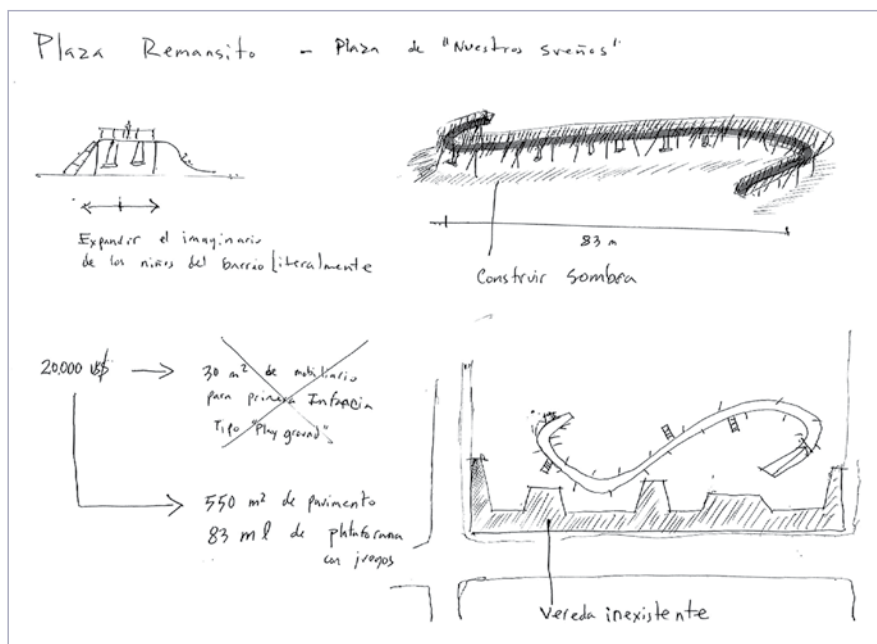 Plaza Remansito - Plaza de "Nuestros sueños"
Expandir el imaginario
de los niños del barrio literalmente
83 m
Construir sombra
20.000 U$
30 m² de mobiliario
para primera Infancia
Tipo "Play ground"
550 m² de pavimento
83 ml de plataforma
con juegos
Vereda inexistente